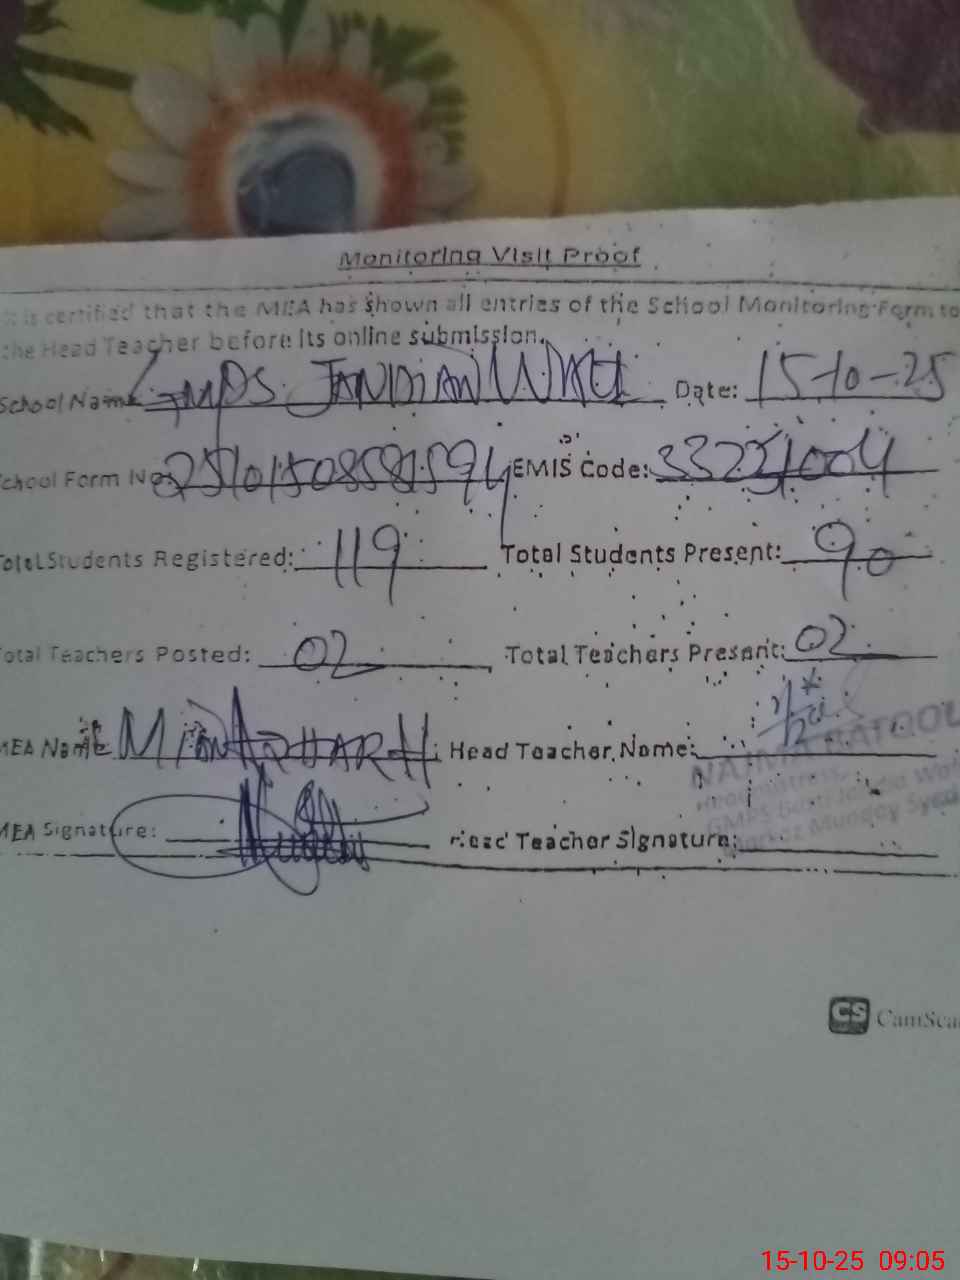 Monitoring Visit Proof
It is certified that the MEA has shown all entries of the School Monitoring Form to
the Head Teacher before its online submission.
School Name GMPS JANDIAN WALI Date: 15-10-25
School Form No: EMIS Code:
Total Students Registered: 119 Total Students Present: 90
Total Teachers Posted: 02 Total Teachers Present: 02
MEA Name MIAN Head Teacher Name:
NAJMA BATOOL
Headmistress
GMPS Basti
Markaz Munday Syed
MEA Signature: Head Teacher Signature:
CS CamSca
15-10-25 09:05